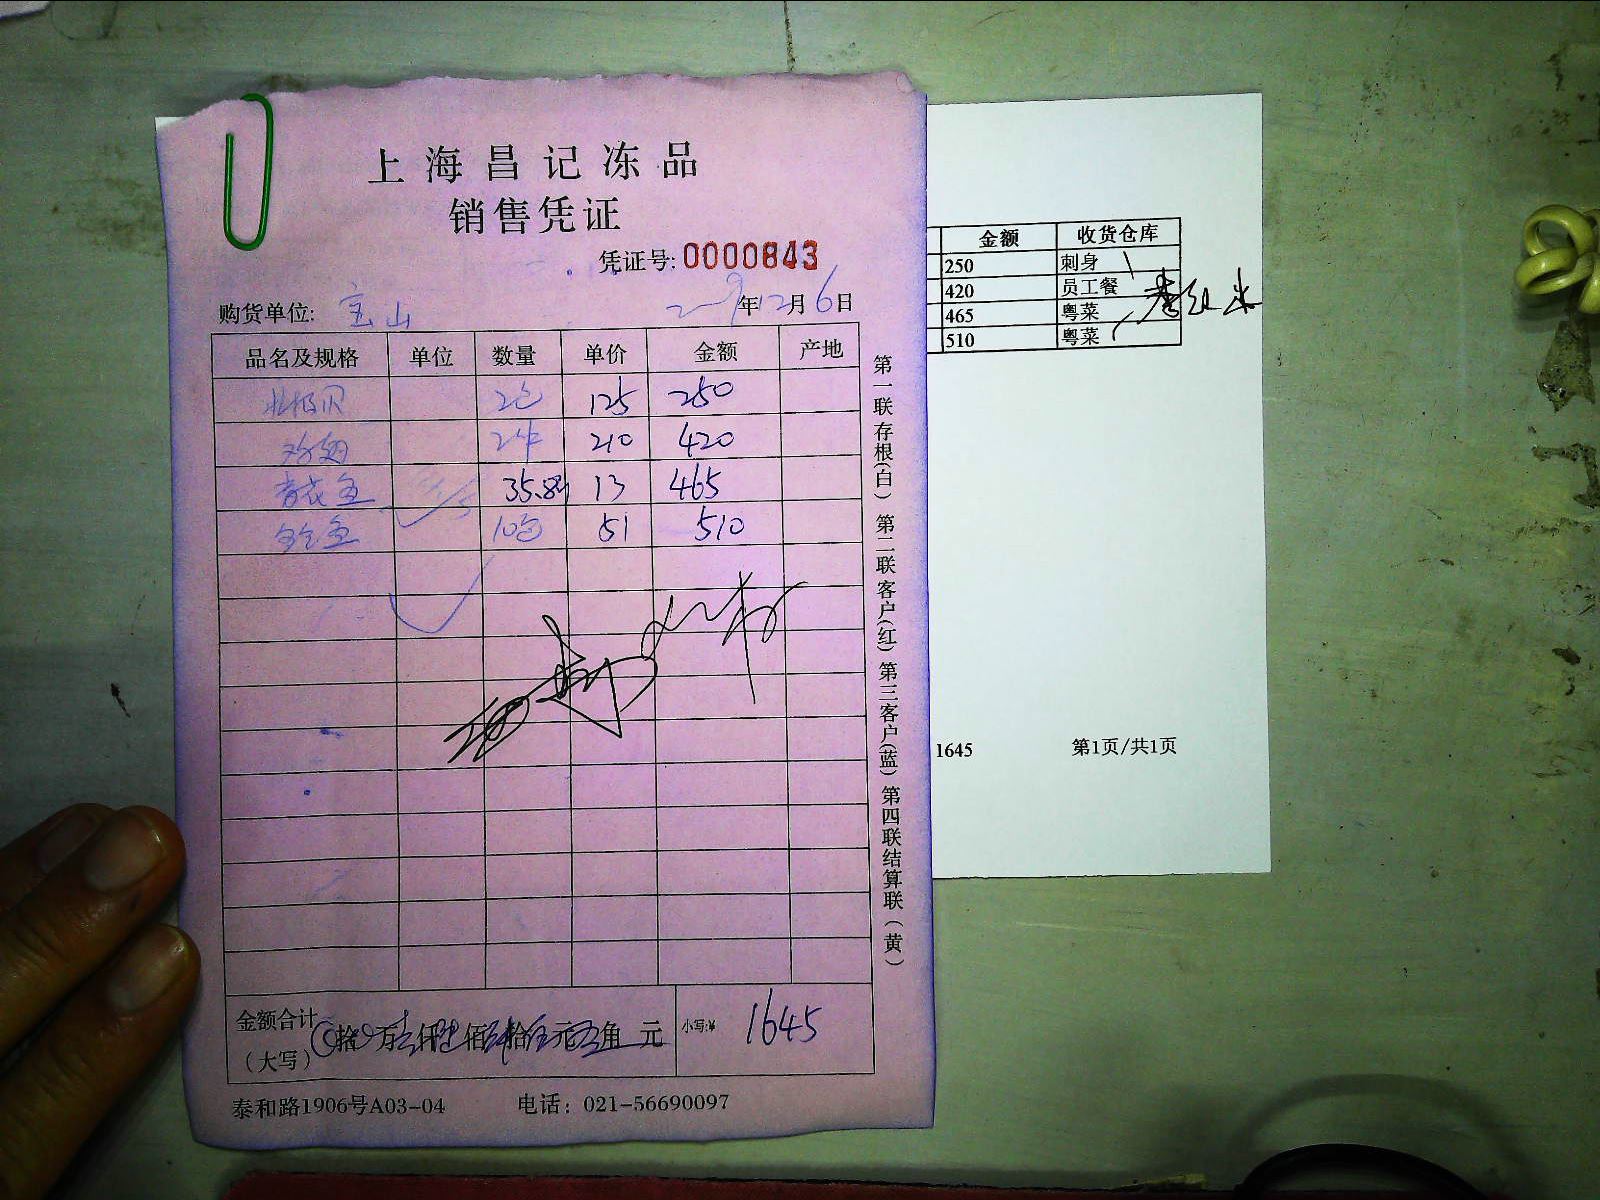 上海昌记冻品
销售凭证
凭证号: 0000843
购货单位: 宝山 年12月6日
品名及规格 单位 数量 单价 金额 产地
北极贝 2包 125 250
鸡翅 2件 210 420
青花鱼 35.8 13 465
10包 51 510
金额合计 拾 万 仟 佰 拾 元 角 元 小写:¥ 1645
(大写)
泰和路1906号A03-04 电话: 021-56690097
第一联存根(白) 第二联客户(红) 第三客户(蓝) 第四联结算联(黄)
金额 收货仓库
250 刺身
420 员工餐
465 粤菜
510 粤菜
1645 第1页/共1页